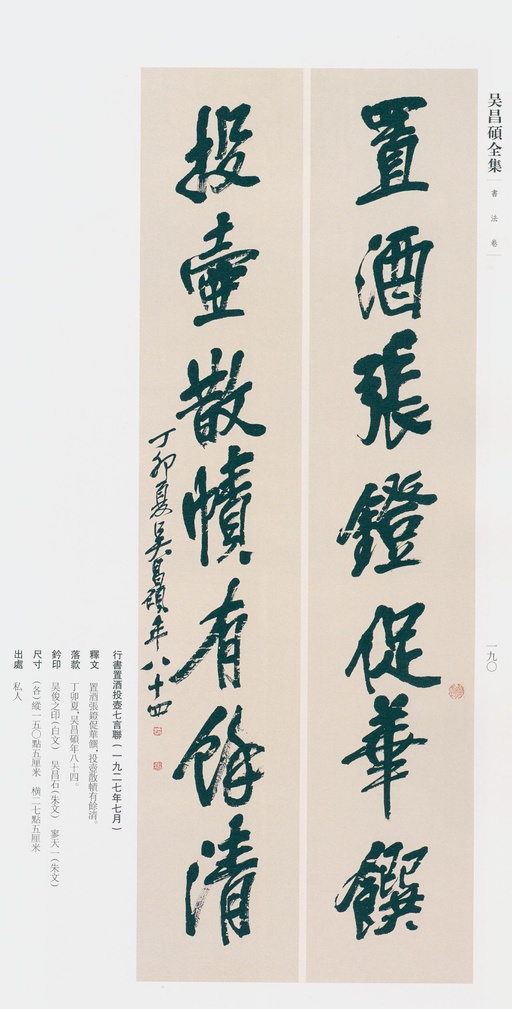 吴昌碩全集
書法卷
一九〇
置酒張鐙促華饌
投壺散幘有餘清
丁卯夏吳昌碩年八十四
行書置酒投壺七言聯（一九二七年七月）
釋文　置酒張鐙促華饌，投壺散幘有餘清。
落款　丁卯夏，吴昌碩年八十四。
鈐印　吴俊之印（白文）　吴昌石（朱文）　寥天一（朱文）
尺寸　（各）縱一五〇點五厘米　橫二七點五厘米
出處　私人